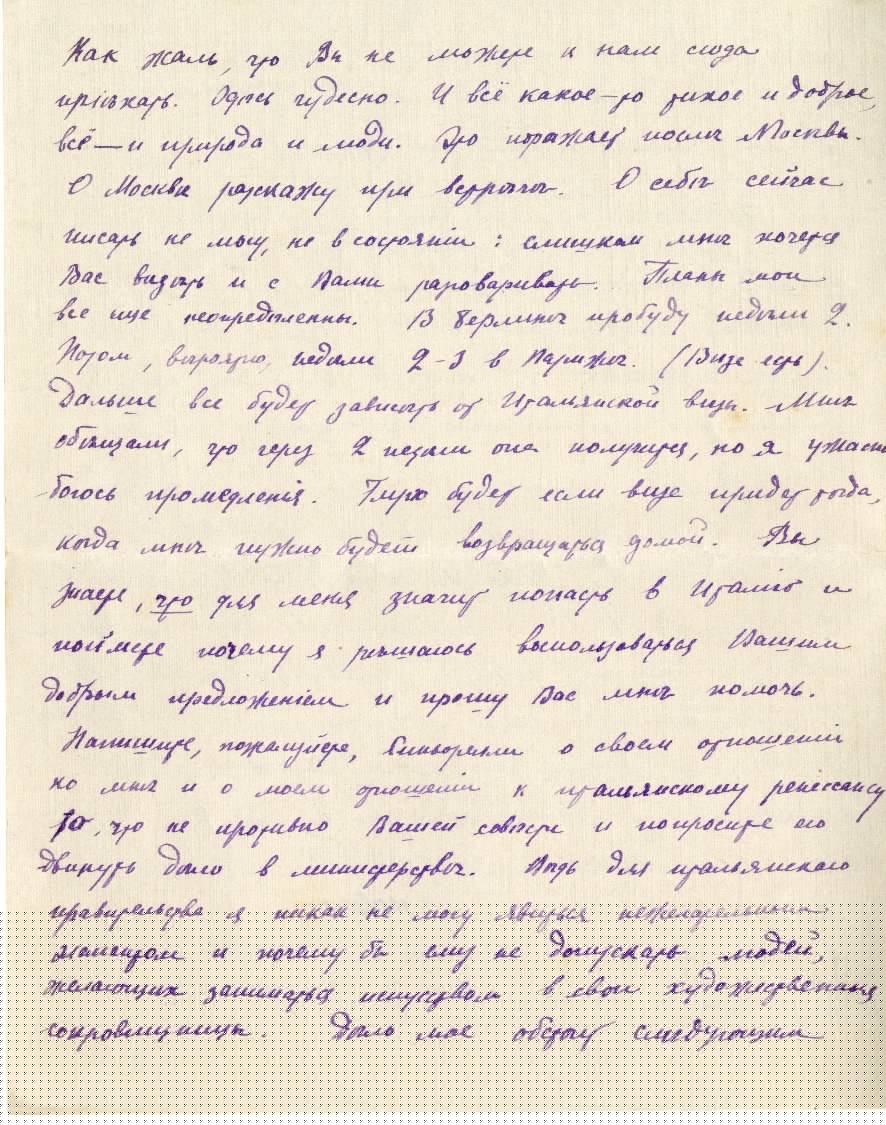 Как жаль, что Вы не можете к нам сюда
пріѣхать. Здѣсь чудесно. И всё какое-то тихое и доброе,
всё — и природа и люди. Это поражает послѣ Москвы.
О Москвѣ разскажу при встрѣчѣ. О себѣ сейчас
писать не могу, не в состояніи: слишком мнѣ хочется
Вас видѣть и с Вами разговаривать. Планы мои
все еще неопредѣленны. В Берлинѣ пробуду недѣли 2.
Потом, вѣроятно, недѣли 2-3 в Парижѣ. (Виза есть).
Дальше все будет зависѣть от Итальянской визы. Мнѣ
обѣщали, что через 2 недѣли она получится, но я ужасно
боюсь промедленія. Глупо будет если виза придет тогда,
когда мнѣ нужно будет возвращаться домой. Вы
знаете, что для меня значит попасть в Италію и
поймете почему я рѣшаюсь воспользоваться Вашим
добрым предложеніем и прошу Вас мнѣ помочь.
Напишите, пожалуйста, Синьорелли о своем отношеніи
ко мнѣ и о моем отношеніи к итальянскому ренессансу
то, что не противно Вашей совѣсти и попросите его
двинуть дѣло в министерствѣ. Вѣдь для итальянскаго
правительства я никак не могу явиться нежелательным
элементом и почему бы ему не допускать людей,
желающих заниматься искусством в свои художественныя
сокровищницы. Дѣло мое обстоит слѣдующим